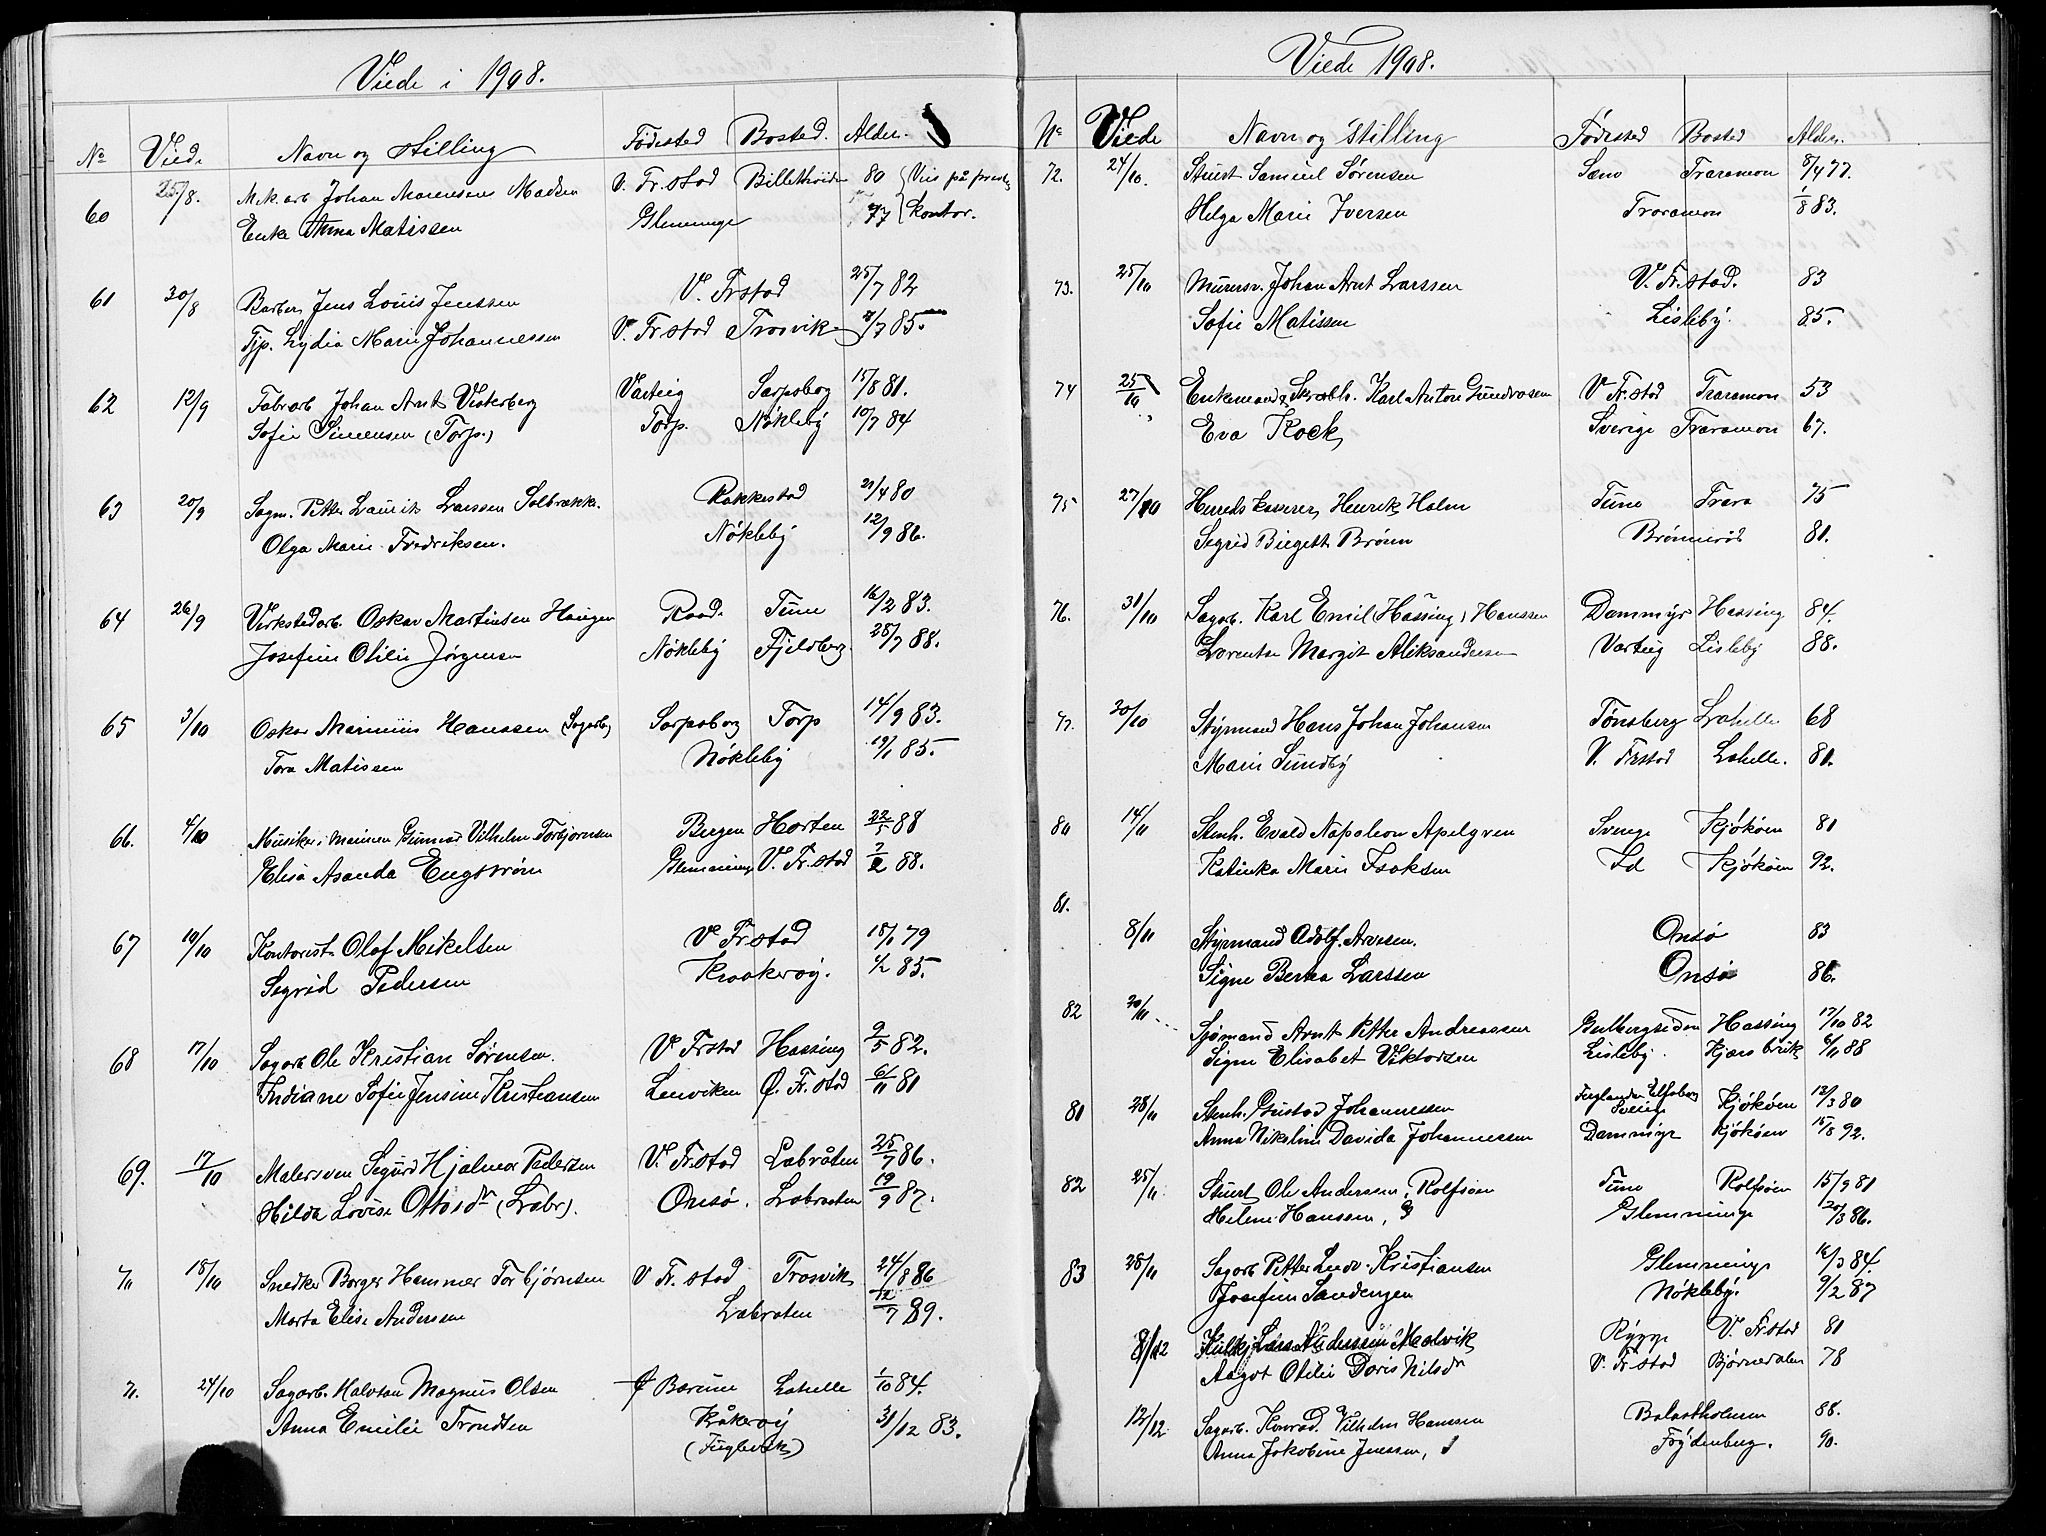 Viede i 1908.
No Viede Navn og Stilling Fødested Bosted. Alder.
60 25/8. Mek. arb Johan Marensen Madsen V. Fr.stad 80 Vies på preste
Enke Anna Matissen Glemminge 77 kontor.
61 30/8 Barber Jens Louis Jenssen V. Frstad 25/7 82
Tjp. Lydia Marie Johannessen V. Fr stad Trosvik 7/7 85.
62 12/9 Fabr arb Johan Arnt Vesterberg Varteig Sarpsborg 15/8 81.
Sofie Simensen (Torp.) Torp. Nökleby 10/7 84
63 20/9 Sagm. Petter Laurits Larssen Solbrække. Rakkestad 21/4 80
Olga Marie Fredriksen. Nökleby 12/9 86.
64 26/9 Verkstedarb. Oskar Martinsen Haugen Raad. Tune 16/2 83.
Josefine Otilie Jørgensen Nökleby Fjeldberg. 28/7 88.
65 3/10 Oskar Marinius Hanssen (Sagarb) Sarpsborg Torp 14/9 83.
Tora Matissen Nökleby 19/1 85.
66. 4/10 Musiker i marinen Gunnar Vilhelm Torbjørnsen Bergen Horten 22/5 88
Elisa Asanda Engstrøm Glemminge V. Fr.stad 7/2 88.
67 10/10 Kontorist Olaf Mikelsen V Fr.stad 18/1 79
Sigrid Pedersen Kraakerøy. 4/2 85.
68 17/10 Sagarb Ole Kristian Sørensen. V Frstad Hassing 9/5 82.
Indiane Sofie Jensine Kristiansen Leuviken Ø. Fr. stad 6/11 81
69. 17/10 Malersven Sigurd Hjalmar Pedersen V. Fr.stad Labråten 25/7 86.
Hilda Lovise Ottosdr (Labr). Onsø. Labraaten 19/9 87.
70 18/10 Snedker Borger Hammer Torbjørnsen V Fr. stad Trosvik 24/8 86
Marta Elise Andersen Labraten 12/7 89.
71. 24/10 Sagarb. Halvdan Magnus Olsen Bærum Lahelle 1/10 84.
Anna Emilie Trondsen Kråkerøy 31/12 83.
(Fuglevik)
Viede 1908.
No Viede Navn og Stilling Fødested Bosted Alder.
72. 24/10. Stuert Samuel Sørensen Sæne Traramon 8/4 77.
Helga Marie Iversen Traramon 1/8 83.
73. 25/10 Murersv. Johan Arnt Larssen V. Fr.stad. 83
Sofie Matissen Lisleby. 85.
74 25/10 Enkemand Karl Anton Gundrosen V Fr. stad Traramon 53
Eva Kock Sverige Traramon 67.
75 27/10 Herreds kasserer, Henrik Holm Tune Trara 75
Sigrid Birgitt Brønn Brønnerød 81.
76. 31/10 Sagarb. Karl Emil (Hassing) Hanssen Dammyr Hassing 84.
Lorentse Margit Aleksandersen Varteig Lisleby 88.
77. 30/10 Styrmand Hans Johan Johansen Tønsberg Lahelle 68
Marie Sundby V. Frstad Lahelle. 80.
80 14/11 Stenh. Evald Napoleon Apelgren Sverige Kjøkøen 80
Katinka Marie Isaksen Id Kjøkøen 92.
81.
8/11 Styrmand Adolf Arvesen. Onsø 83
Signe Berta Larssen Onsø 86.
82 20/11 Sjømand Arnt Petter Andreassen Gulbergsiden Hassing 17/10 82
Signe Elisabet Viktorsen Lisleby. Kjærsbrik 6/11 88
81 28/11 Stenh. Gustav Johannessen Elfsborg Sverige Kjøkøen 12/3 80
Anna Nikoline Davida Johannessen Dammyr Kjøkøen 15/8 92.
82 25/11 Stuert Ole Anderssen, Rolfsøen Tune Rolfsøen 15/9 81
Helene Hanssen, Glemminge 20/3 86.
83 28/11 Sagarb Petter Ludv. Kristiansen Glemminge 16/3 84.
Josefine Sandengen Nökleby. 9/2 87
8/12 Lars Anderssen Malvik Rygge V. Fr.stad 81
Aagot Otilie Doris Nilsdr V. Fr. stad Bjørnedalen 78
12/12 Sagarb. Konrad Vilhelm Hanssen Balastholmen 88.
Anna Jakobine Jenssen, Frydenberg. 90.